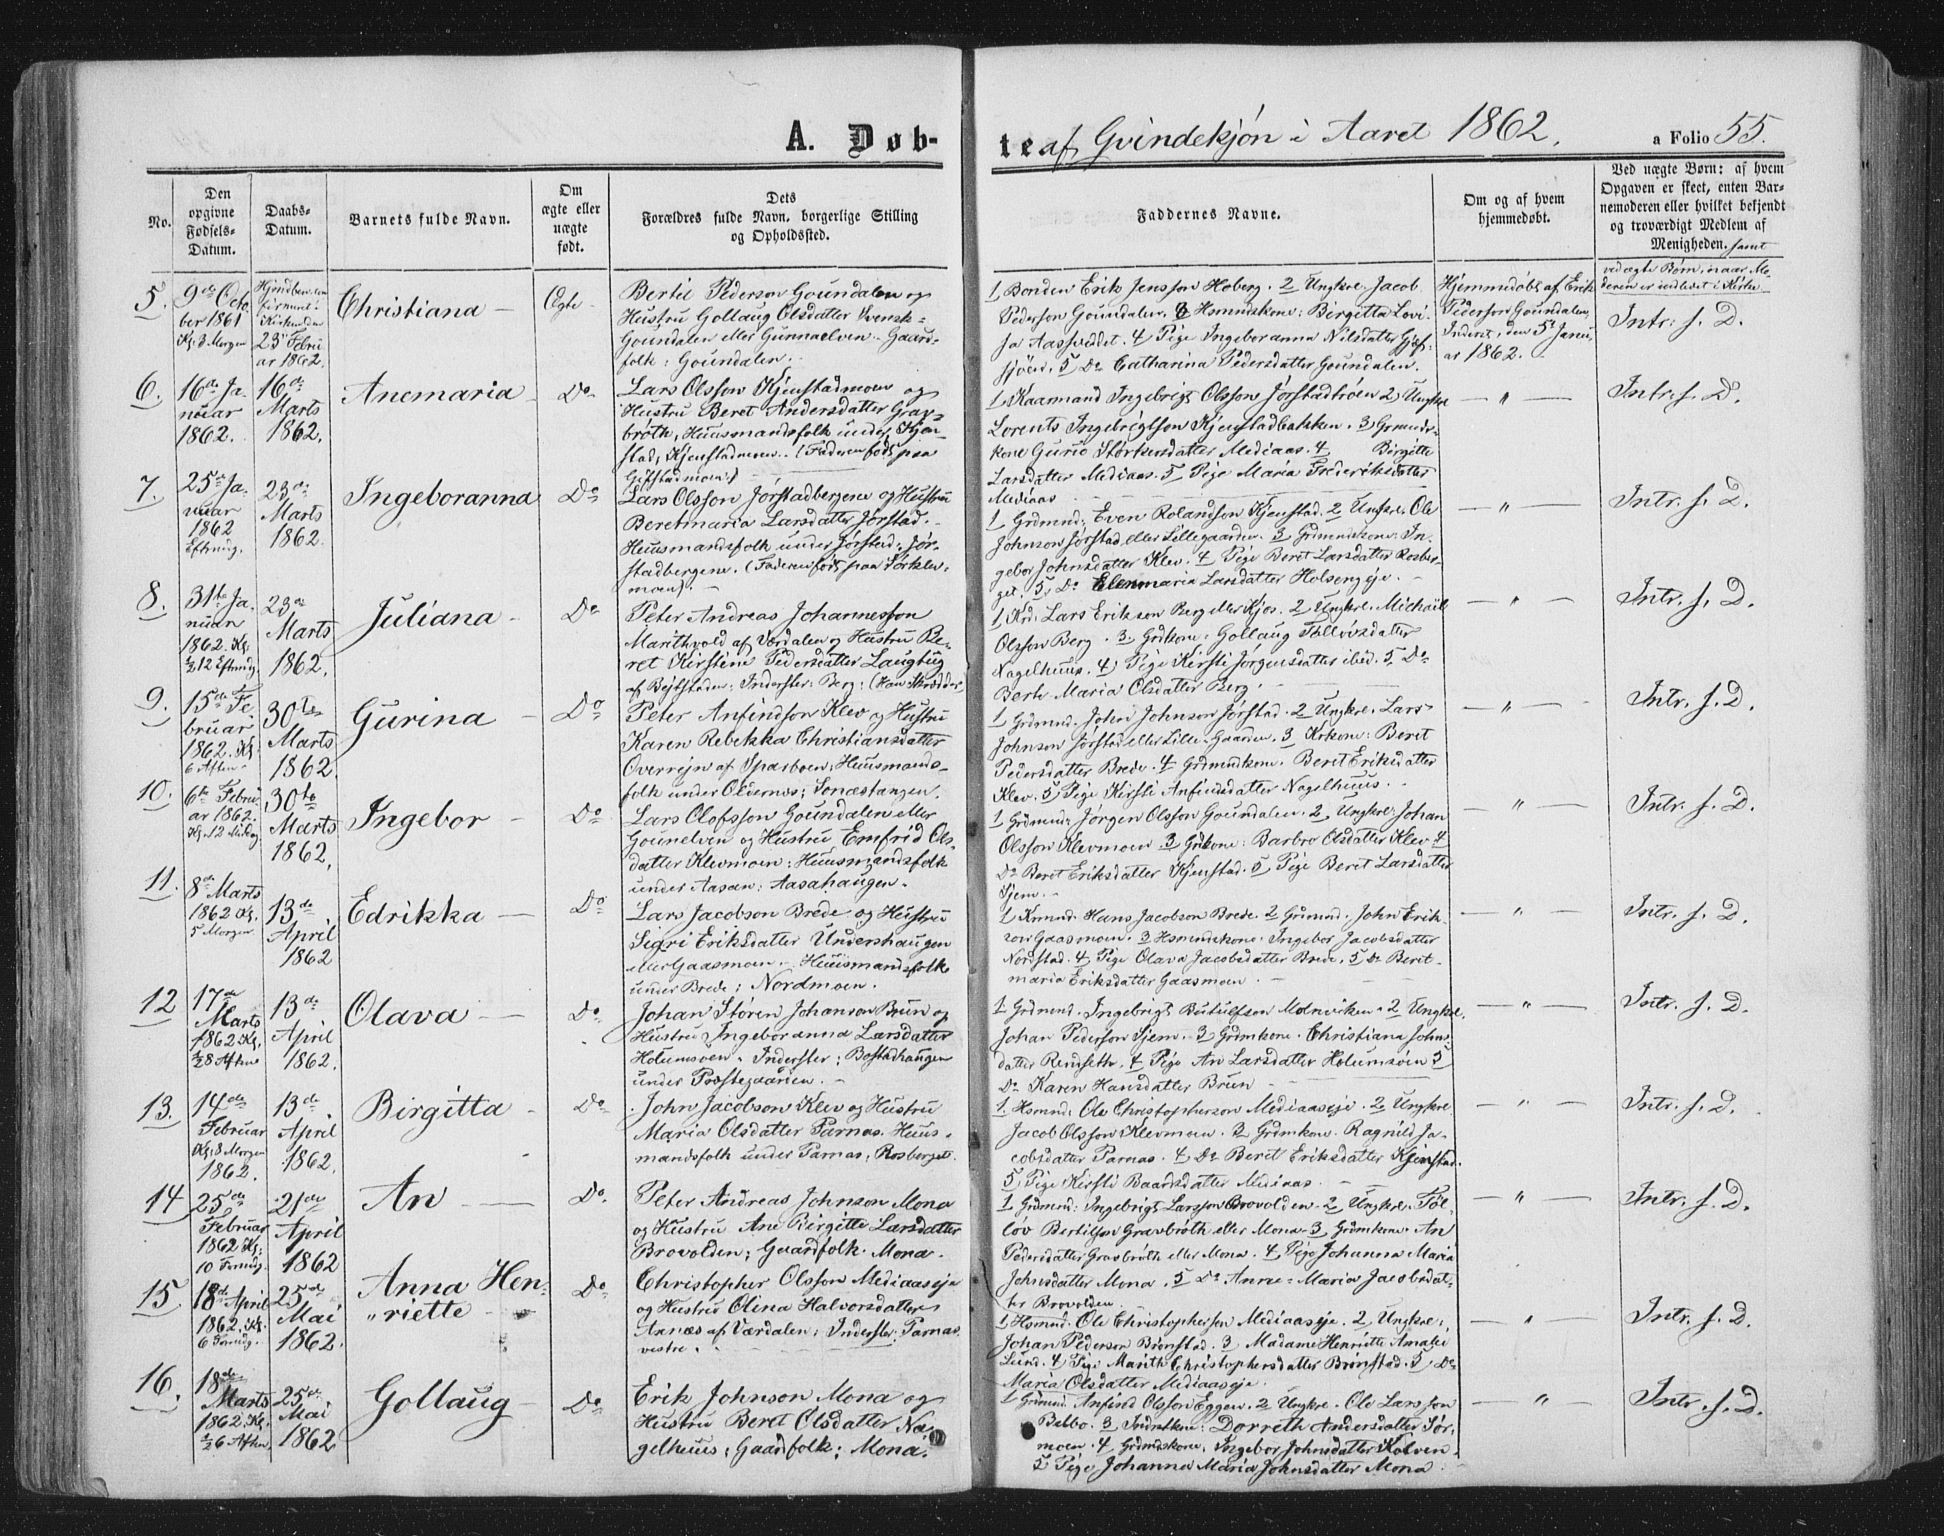 A. Døb-
te af Qvindekjøn i Aaret 1862.
a Folio 55.
No.
Den opgivne Fødsels-Datum.
Daabs-Datum.
Barnets fulde Navn.
Om ægte eller uægte født.
Dets Forældres fulde Navn, borgerlige Stilling og Opholdssted.
Faddernes Navne.
Om og af hvem hjemmedøbt.
Ved uægte Børn: af hvem Opgaven er skeet, enten Barnemoderen eller hvilket bekjendt og troværdigt Medlem af Menigheden. samt
ved ægte Børn, naar Mo-
deren er indledet i Kirke
5.
9de Octo
ber 1861
Kl: 3 Morgen
Kirken den
23 Febru
ar 1862.
Christiana
Ægte
Bertil Pederson Goundalen og
Hustru Gollaug Olsdatter Svensk-
Goundalen eller Gunnaelven. Gaard-
folk: Goundalen.
1, Bonden Erik Jensson Hoberg. 2 Ungkre: Jacob
Pederson Goundalen. 3 Hsmndskone: Birgitta Lovi-
sa Aassveddet. 4 Pige Ingeboranna Nilsdatter Gjef-
sjøen. 5 Do Catharina Pedersdatter Goundalen.
Hjemmedøbt af Erik
Pederson Goundalen,
Inderst, den 5te Janu-
ar 1862.
Intr: f. D.
6.
16de Ja-
nuar
1862.
16de
Marts
1862.
Anemaria
Do
Lars Olsson Kjenstadmoen og
Hustru Beret Andersdatter Grav-
brøth, Huusmandsfolk under Kjen-
stad, Kjenstadmoen. (Faderen født paa
Gifstadmoen)
1 Kaarmand Ingebrigt Olsson Jørstadtrøen 2 Ungkre
Lorents Ingebrigtson Kjenstadbakken. 3 Grmnds-
kone Guruo Størkersdatter Mediaas. 4 Birgitte
Larsdatter Mediaas. 5 Pige Maria Frederiksdatter
Mediaas
— " —
Intr. f. D.
7.
25de Ja-
nuar
1862
Eftmdg.
23de
Marts
1862.
Ingeboranna
Do
Lars Olsson Jørstadbergene og Hustru
Beretmaria Larsdatter Jørstad.
Huusmandsfolk under Jørstad: Jør-
stadbergene. (Faderen født paa Sørklev-
moen).
1 Grdmnd: Even Rolandson Kjenstad. 2 Ungkre. Ole
Johnson Jørstad eller Lillegaarden. 3 Grdmndskone: In-
gebor Johnsdatter Klev. 4 Pige Beret Larsdatter Rosber-
get. 5, Do Elenmaria Larsdatter Holsengeje.
— " —
Intr. f. D.
8.
31te Ja-
nuar
1862. Kl.
½12 Eftmdg.
23de
Marts
1862.
Juliana
Do
Peter Andreas Johannesson
Marithvold af Værdalen og Hustru Be-
ret Kirstine Pedersdatter Laugtug
af Bejtstaden: Inderster: Berg: (Han Skrædder)
1, Krd: Lars Erikson Berg eller Kjos. 2 Ungkre. Michael
Olsson Berg. 3 Grdkone: Gollaug Tølløvsdatter
Nagelhuus. 4) Pige Kirsti Jørgensdatter ibid. 5 Do
Berte Maria Olsdatter Berg.
— " —
Intr. f. D.
9.
15de Fe
bruar
1862. Kl:
6 Aften
30te
Marts
1862.
Gurina
Do
Peter Anfindson Klev og Hustru
Karen Rebekka Christiansdatter
Overrejn af Sparboen: Huusmands-
folk under Oldernes; Sonastangen.
1 Grdmnd. John Johnson Jørstad. 2 Ungkre. Lars
Johnson Jørstad eller Lille-Gaarden. 3 Krkone: Beret
Pedersdatter Brede. 4 Grdmndkone. Beret Eriksdatter
Klev. 5) Pige Kirsti Anfindsdatter Nagelhuus.
— " —
Intr. f. D.
10.
6te Febru
ar 1862.
30te
Marts
1862.
Ingebor
Do
Lars Olofsson Goundalen eller
Gounelven og Hustru Emfrid Ols-
datter Klevmoen: Huusmandsfolk
under Aasan: Aasahaugen.
1 Grdmnd: Jørgen Olsson Goundalen. 2 Ungkre: Johan
Olsson Klevmoen 3 Grdkone: Barbro Olsdatter Klev 4
Do Beret Eriksdatter Kjenstad. 5 Pige Beret Larsdatter
Sjem.
— " —
Intr. f. D.
11.
8de Marts
1862 Kl.
5 Morgen
13de
April
1862
Edrikka
Do
Lars Jacobson Brede og Hustru
Sigri Eriksdatter Undershaugen
eller Gaasmoen. Huusmandsfolk
under Brede; Nordmoen.
1 Krmnd. Hans Jacobson Brede. 2 Grdmnd. John Erik-
son Gaasmoen. 3 Hsmndskone: Ingebor Jacobsdatter
Nordstad. 4, Pige Olava Jacobsdatter Brede, 5 Do Beret-
maria Eriksdatter Gaasmoen
— " —
Intr. f. D.
12
17de
Marts
1862 Kl.
½8 Aften
13de
April
1862.
Olava
Do
Johan Støren Johanson Brun og
Hustru Ingeboranna Larsdatter
Holumsøen. Inderster: Bostadhaugen
under Præstegaarden.
1. Grdmnd: Ingebrigt Butulfson Molnviken. 2 Ungkre.
Johan Pederson Sjem. 3 Grdmkone. Christiana Johns-
datter Rendseth. 4 Pige An Larsdatter Holumsøen 5
Do Karen Hansdatter Brun
— " —
Intr. f. D.
13.
14de
Februar
Kl. 3 Morgen
1862.
13de
April
1862.
Birgitta
Do
John Jacobson Klev og Hustru
Maria Olsdatter Parnas. Huus-
mandsfolk under Parnas, Rosberget.
1. Hsmnd: Ole Christopherson Mediaaseje. 2 Ungkre
Jacob Olsson Klevmoen. 3 Grdmkone. Ragnild Ja-
cobsdatter Parnas. 4 Do Beret Eriksdatter Kjenstad.
5, Pige Kirsti Baardsdatter Mediaas.
— " —
Intr. f. D.
14
25de
Februar
1862 Kl:
10 Formdg.
21de
April
1862
An
Do.
Peter Andreas Johnson Mona
og Hustru Ane Birgitte Larsdatter
Brovolden; Gaardfolk. Mona.
1 Grdmnd: Ingebrigt Larsson Brovolden. 2 Ungkre. Tøl-
løv Bertilson Gravbrøth eller Mona. 3 Grdmkone. An
Pedersdatter Gravbrøth eller Mona. 4, Pige Johanna Maria
Johnsdatter Mona. 5 Do Anne-Maria Jacobsdat-
ter Brovolden.
— " —
Intr. f. D.
15
18de April
1862. Kl.
6 Formdg.
25de
Mai
1862.
Anna Hen-
"riette
Do
Christopher Olsson Mediaaseje
og Hustru Olina Halvorsdatter
Aanæs af Værdalen; Inderster: Parnas
vestre.
1 Hsmnd. Ole Christopherson Mediaaseje. 2 Ungkre:
Johan Pederson Brønstad. 3 Madame Henriette Amalie
Lund. 4 Pige Marith Christophersdatter Brønstad. 5, Do
Maria Olsdatter Mediaaseje.
— " —
Intr. f. D.
16.
18de
Marts
1862. Kl.
½6 Aften.
25de
Mai
1862
Gollaug
Do
Erik Johnson Mona og
Hustru Beret Olsdatter Na-
gelhuus; Gaardfolk: Mona.
1 Grdmnd. Anfind Olsson Eggen. 2 Ungkre. Ole Larsson
Belbo. 3 Indrstkone: Dorreth Andersdatter Sør-
moen. 4 Grdmndskone, Ingebor Johnsdatter Kolven.
5 Pige Johanna Maria Johnsdatter Mona.
— " —
Intr. f. D.